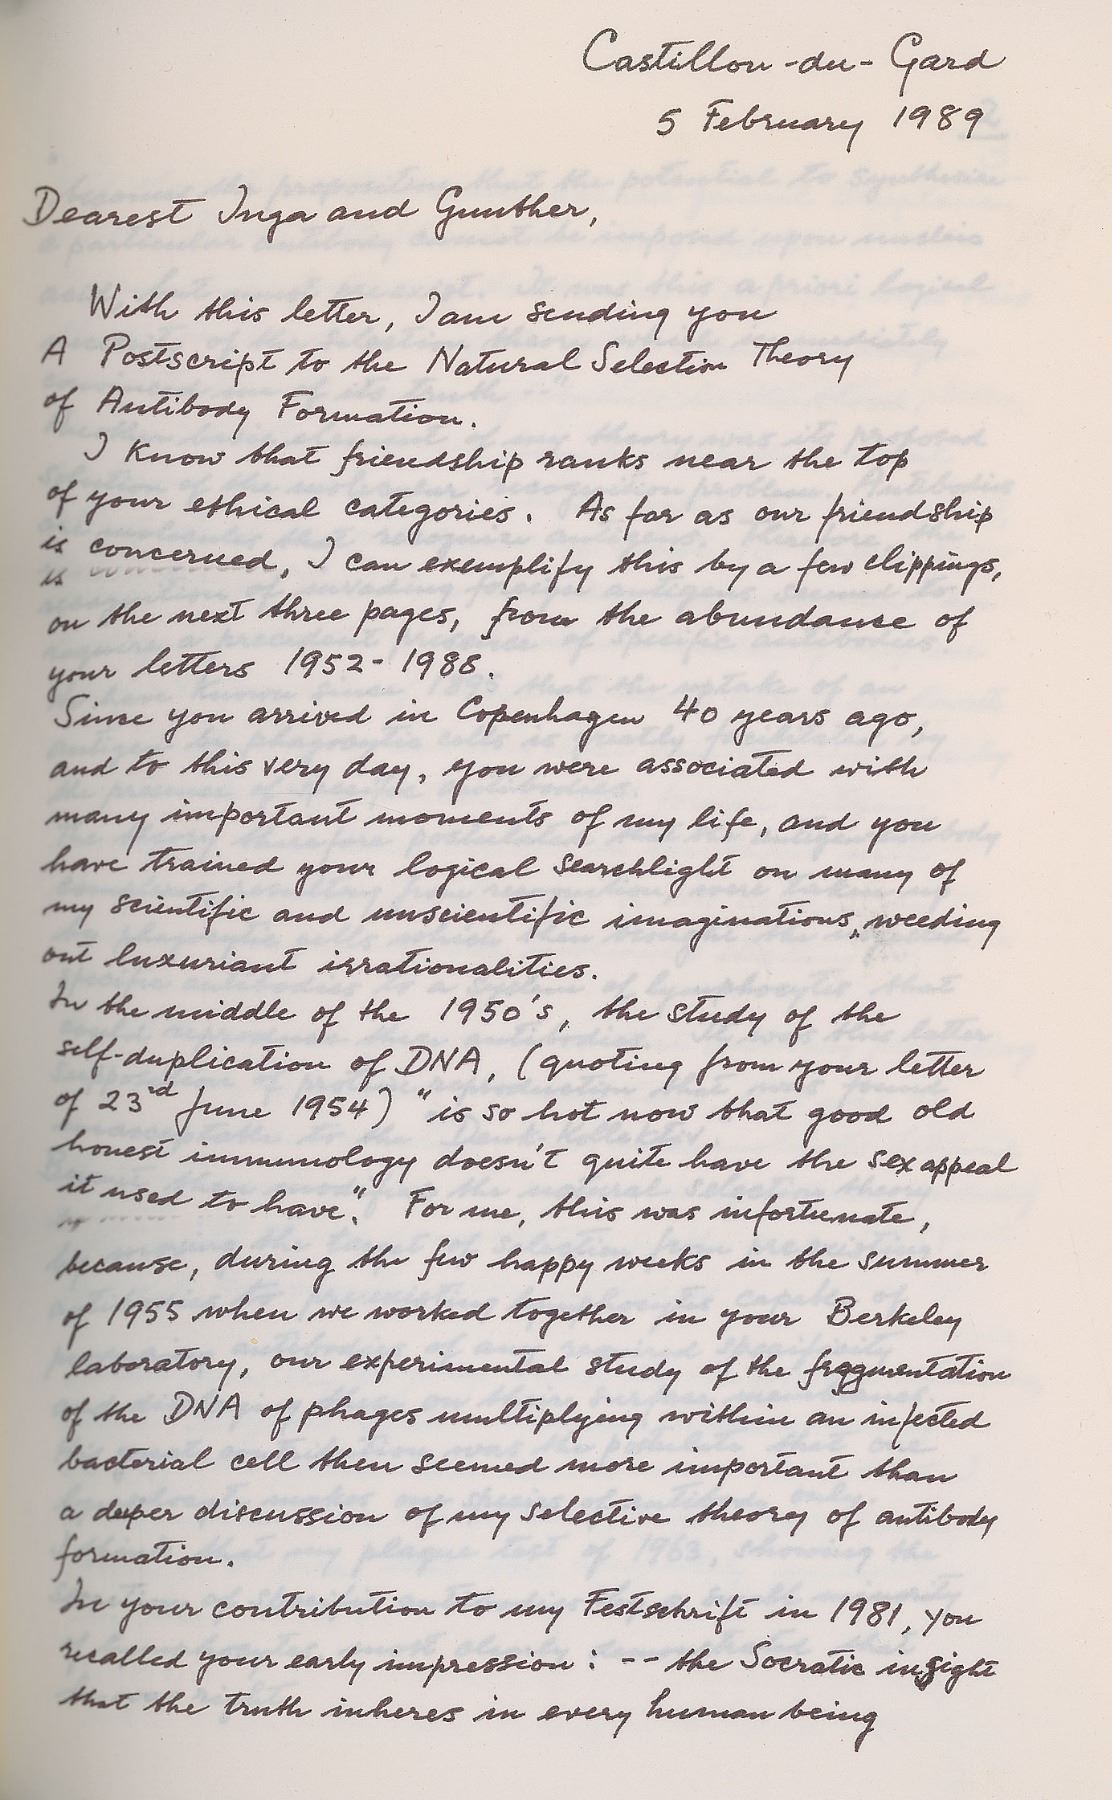 Castillon-du-Gard
5 February 1989
Dearest Inga and Gunther,
With this letter, I am sending you
A Postscript to the Natural Selection Theory
of Antibody Formation.
I know that friendship ranks near the top
of your ethical categories. As far as our friendship
is concerned, I can exemplify this by a few clippings,
on the next three pages, from the abundance of
your letters 1952-1988.
Since you arrived in Copenhagen 40 years ago,
and to this very day, you were associated with
many important moments of my life, and you
have trained your logical searchlight on many of
my scientific and unscientific imaginations, weeding
out luxuriant irrationalities.
In the middle of the 1950's, the study of the
self-duplication of DNA, (quoting from your letter
of 23rd June 1954) "is so hot now that good old
honest immunology doesn't quite have the sex appeal
it used to have". For me, this was infortunate,
because, during the few happy weeks in the summer
of 1955 when we worked together in your Berkeley
laboratory, our experimental study of the fragmentation
of the DNA of phages multiplying within an infected
bacterial cell then seemed more important than
a deeper discussion of my selective theory of antibody
formation.
In your contribution to my Festschrift in 1981, you
recalled your early impression: -- the Socratic insight
that the truth inheres in every human being